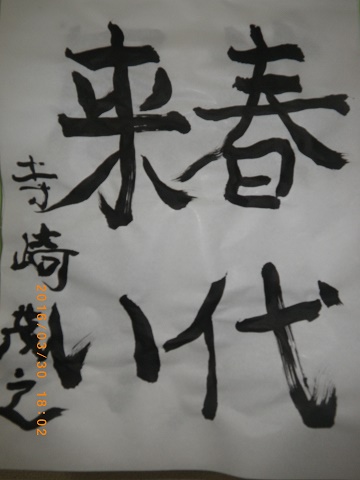 春代
来い
寺崎茂之
2016/03/30 18:02